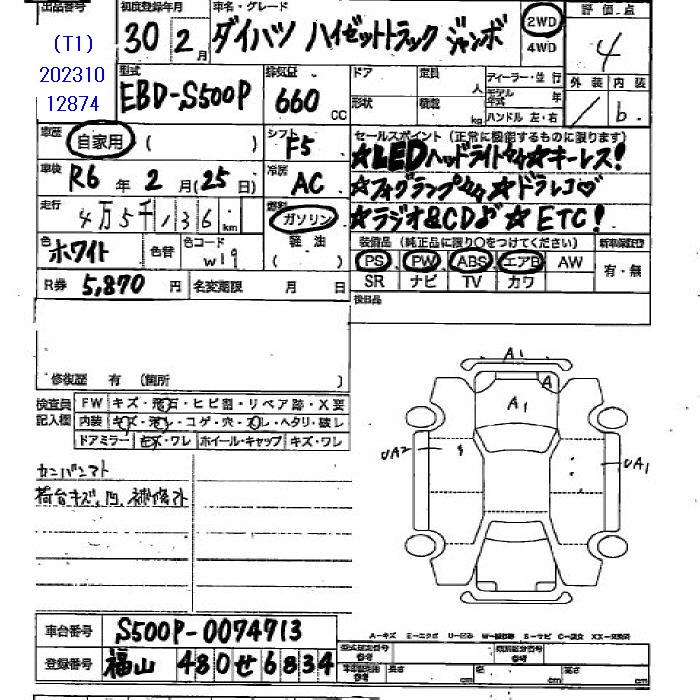 出品番号 初度登録年月 車名・グレード 2WD 評価点
(T1) 30 2月 ダイハツ ハイゼットトラック ジャンボ 4WD 4
202310 型式 排気量 ドア 定員 人 ディーラー・並行 外装 内装
12874 EBD-S500P 660 CC 形状 積載 kg モデル年式 年 ハンドル 左・右 / b.
車歴 自家用 ( ) シフト F5 セールスポイント (正常に機能するものに限ります)
☆LEDヘッドライト ☆キーレス!
車検 R6 年 2 月(25日) 冷房 AC ☆フォグランプ ☆ドラレコ♡
走行 4万5千136km 燃料 ガソリン ☆ラジオ&CD♪ ☆ETC!
色 ホワイト 色替 色コード W19 軽油 ( ) 装備品 (純正品に限り○をつけてください) 新車保証書
PS PW ABS エアB AW 有・無
R券 5,870 円 名変期限 月 日 SR ナビ TV カワ
後日品
修復歴 有 (箇所 )
検査員記入欄 FW キズ・飛石・ヒビ割・リペア跡・X要
内装 キズ・汚レ・コゲ・穴・スレ・ヘタリ・破レ
ドアミラー キズ・ワレ ホイール・キャップ キズ・ワレ
カンバンアト
荷台キズ、凹、補修アト
A1
A
A1
UA2
UA1
車台番号 S500P-0074713
A-キズ E-エクボ U-凹み W-補修跡 S-サビ C-腐食 XX-交換済
登録番号 福山 480 せ 6834
型式指定番号 参考 類別区分番号 参考
長さ cm 幅 cm 高さ cm